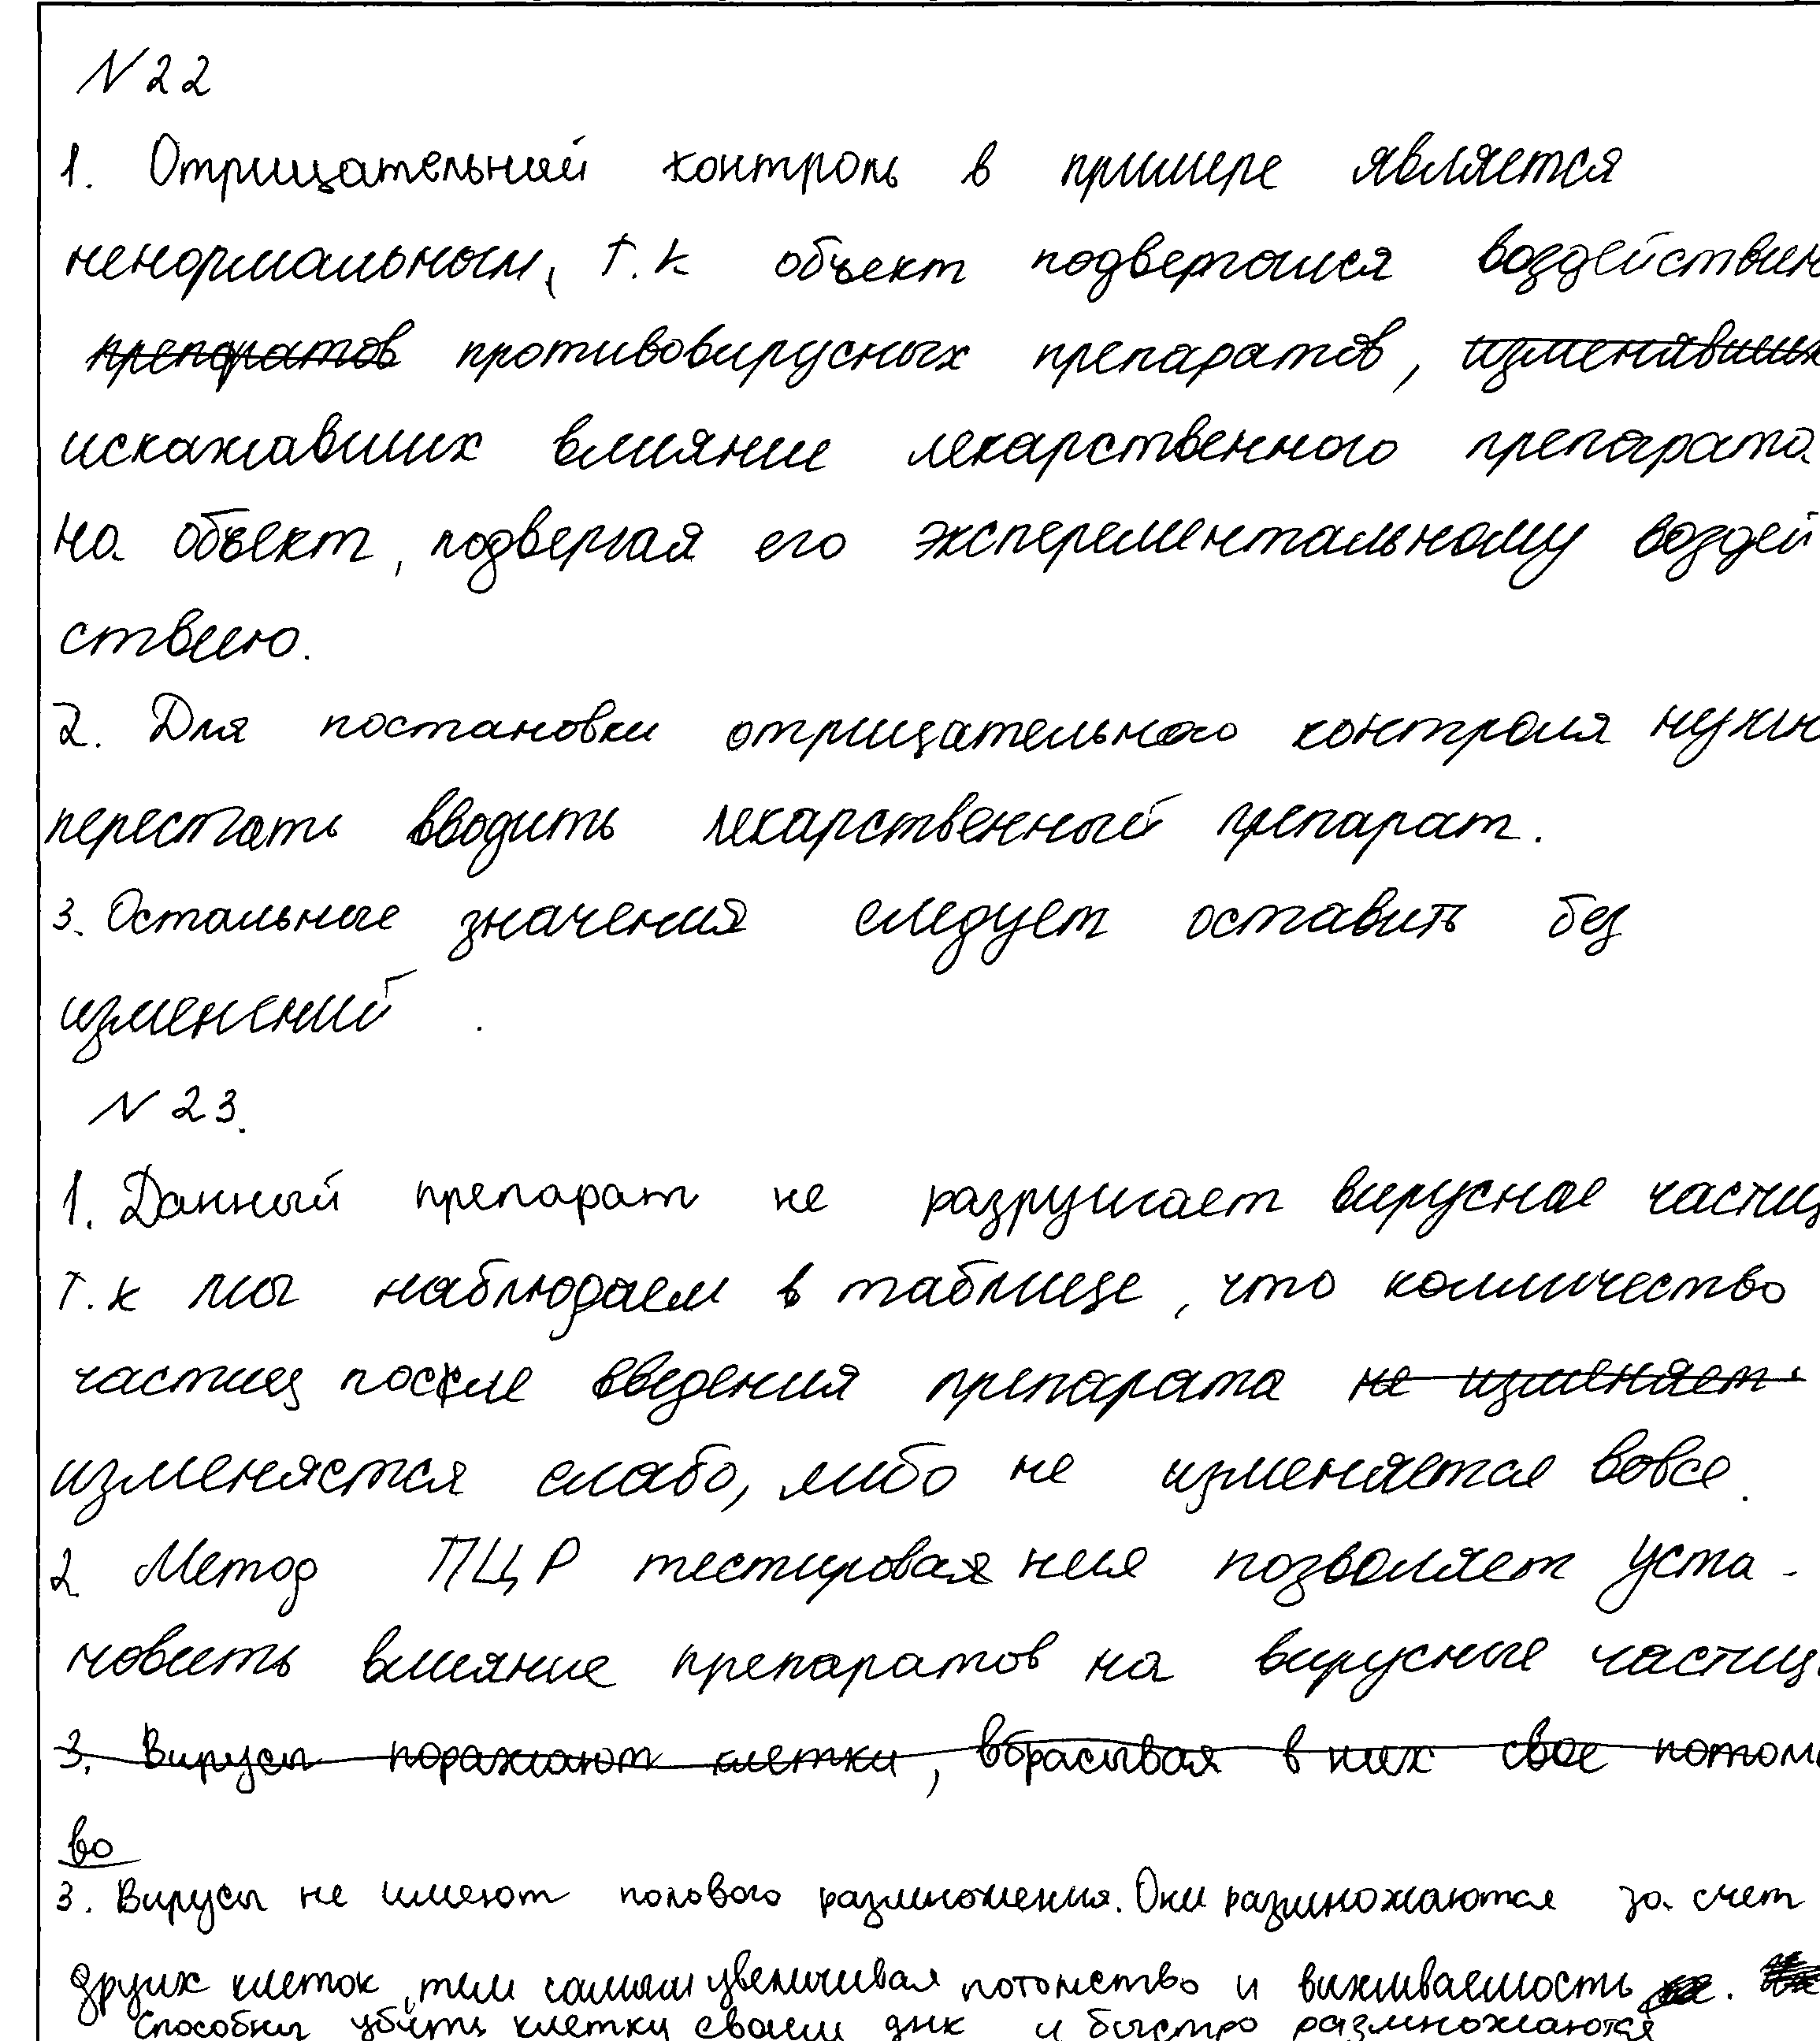 N 22
1. Отрицательный контроль в примере является
ненормальным, т.к объект подвергался воздействию
препаратов противовирусных препаратов, изменявших
искажавших влияние лекарственного препарата
на объект, подвергая его эксперементальному воздей
ствию.
2. Для постановки отрицательного контроля нужн
перестать вводить лекарственный препарат.
3. Остальные значения следует оставить без
изменений.
N 23.
1. Данный препарат не разрушает вирусные частиц
т.к мы наблюдаем в таблице, что количество
частиц после введения препарата не изменяет
изменяется слабо, либо не изменяется вовсе.
2. Метод ПЦР тестирования позволяет уста-
новить влияние препаратов на вирусные частиц
3. Вирусы поражают клетки, вбрасывая в них свое потом
во
3. Вирусы не имеют полового размножения. Они размножаются за счет
других клеток, тем самым увеличивая потомство и выживаемость.
Способны убить клетку своем днк и быстро размножаются